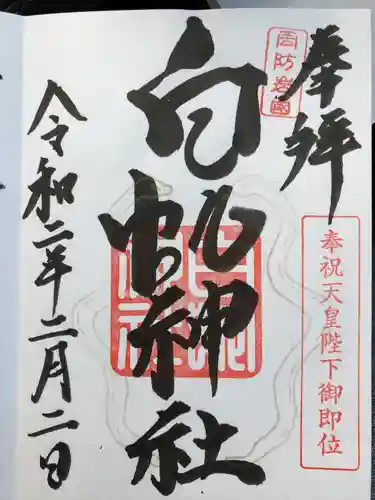 奉拝
周防岩国
奉祝天皇陛下御即位
白蛇神社
令和二年二月二日